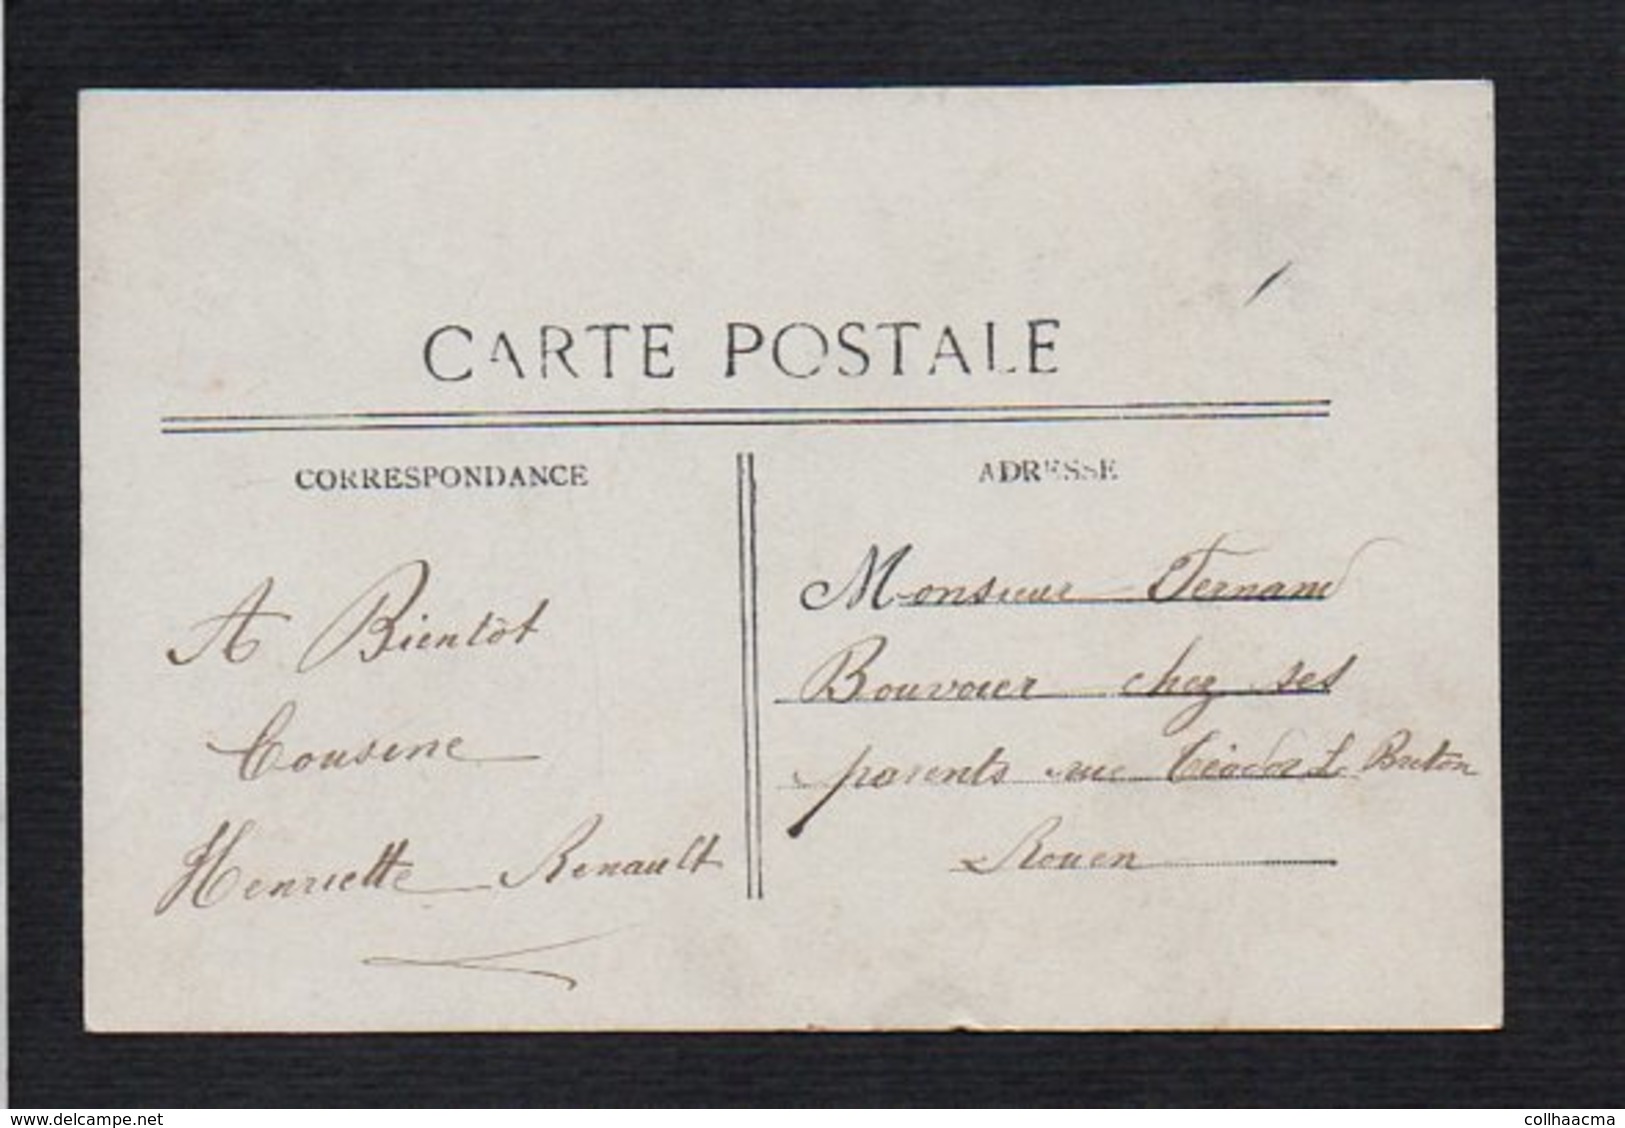 CARTE POSTALE
CORRESPONDANCE
A Bientôt
Cousine
Henriette Renault
ADRESSE
Monsieur Fernand
Bouvoier chez ses
parents rue Téodor L Breton
Rouen
www.delcampe.net
collhaacma